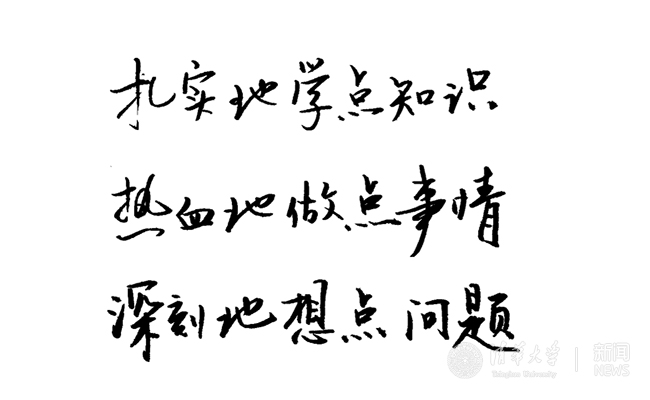 扎实地学点知识
热血地做点事情
深刻地想点问题
清华大学 | 新闻
Tsinghua University NEWS